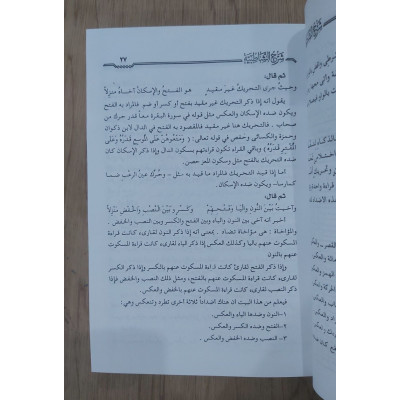 شرح الشاطبية ٢٧
ثم قال:
وحيث جرى التحريك غير مقيد هو الفتح والإسكان آخاه منزلا
يقول أنه إذا ذكر التحريك غير مقيد بفتح أو كسر أو ضم فالمراد به الفتح
ويكون ضده الإسكان والعكس مثل قوله في سورة البقرة معا قدر حرك من
صحاب . فالتحريك هنا غير مقيد فالمقصود به الفتح في الدال لابن ذكوان
وحمزة والكسائي وحفص في قوله تعالى : ﴿وَمَتِّعُوهُنَّ عَلَى الْمُوسِعِ قَدَرُهُ وَعَلَى
الْمُقْتِرِ قَدَرُهُ﴾ وباقي القراء تكون قراءتهم بسكون الدال وإذا ذكر الإسكان كان
ضده التحريك بالفتح مثل وسكون المعز حصن.
أما إذا قيد التحريك بالضم أو قيد به مثل - وحرك عين الرعب ضما
كما رسا- ويكون ضده الإسكان.
ثم قال:
وآخيت بين النون واليا وفتحهم وكسر وبين النصب والخفض منزلا
أخبر أنه آخى بين النون والياء وبين الفتح والكسر وبين النصب والخفض.
والمؤاخاة : هي مؤاخاة تضاد . بمعنى أنه إذا ذكر النون لقارىء كانت قراءة
المسكوت عنهم بالياء وكذلك العكس إذا ذكر الياء لقارىء كانت قراءة المسكوت
عنهم بالنون
وإذا ذكر الفتح لقارئ كانت قراءة المسكوت عنهم بالكسر وإذا ذكر الكسر
لقارىء كانت قراءة المسكوت عنهم بالفتح، ومثل ذلك النصب والخفض إذا
ذكر النصب لقارىء كانت قراءة المسكوت عنهم بالخفض والعكس.
فيعلم من هذا البيت أن هناك أضداداً ثلاثة أخرى تطرد وتنعكس وهي:
١-النون وضدها الياء والعكس.
٢-الفتح وضده الكسر والعكس.
٣- النصب وضده الخفض والعكس.